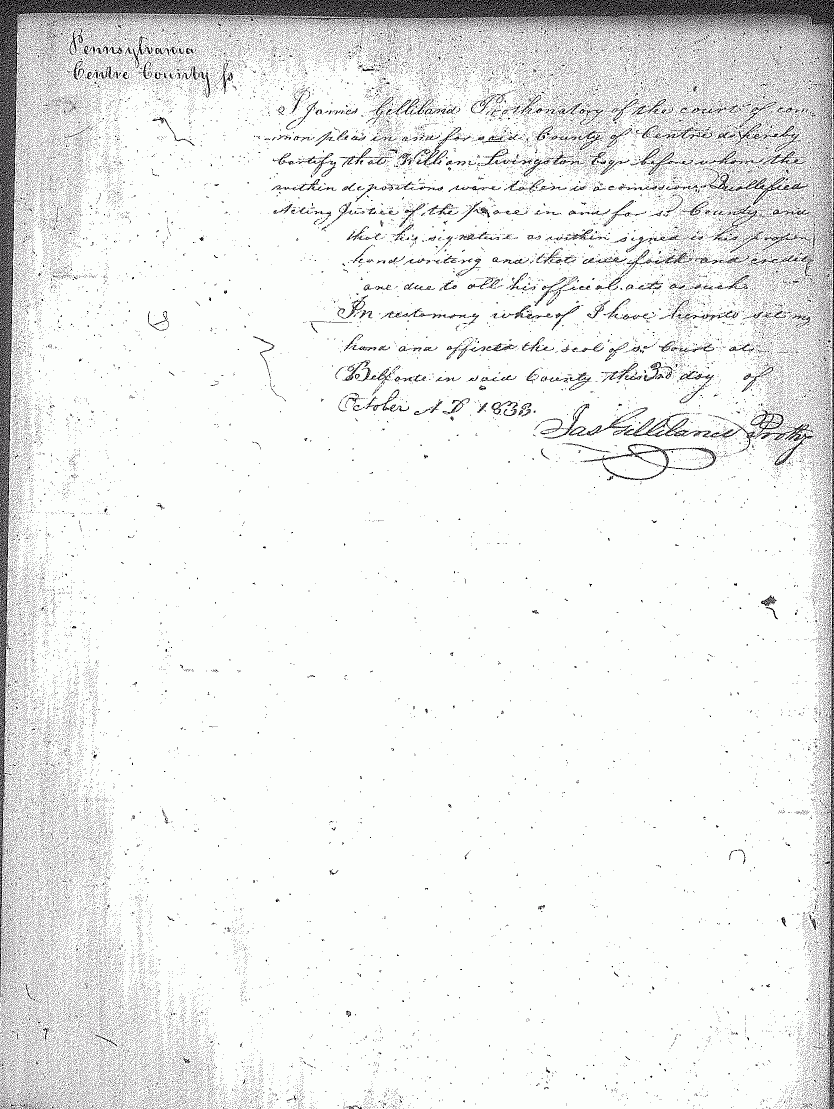 Pennsylvania
Centre County ss
I James Gilliland Prothonatory of the court of com
mon pleas in and for said County of Centre do hereby
Certify that William Livingston Esqr before whom the
within depositions were taken is a comission Quallefied
Acting Justice of the peace in and for sd County and
that his signature as within signed is his proper
hand writing and that due faith and credit
are due to all his official acts as such
In testamony whereof I have herunto set my
hand and affixed the seal of sd Court at
Belfonte in said County this 3rd day of
October A D 1833.
Jas Gilliland Prothy